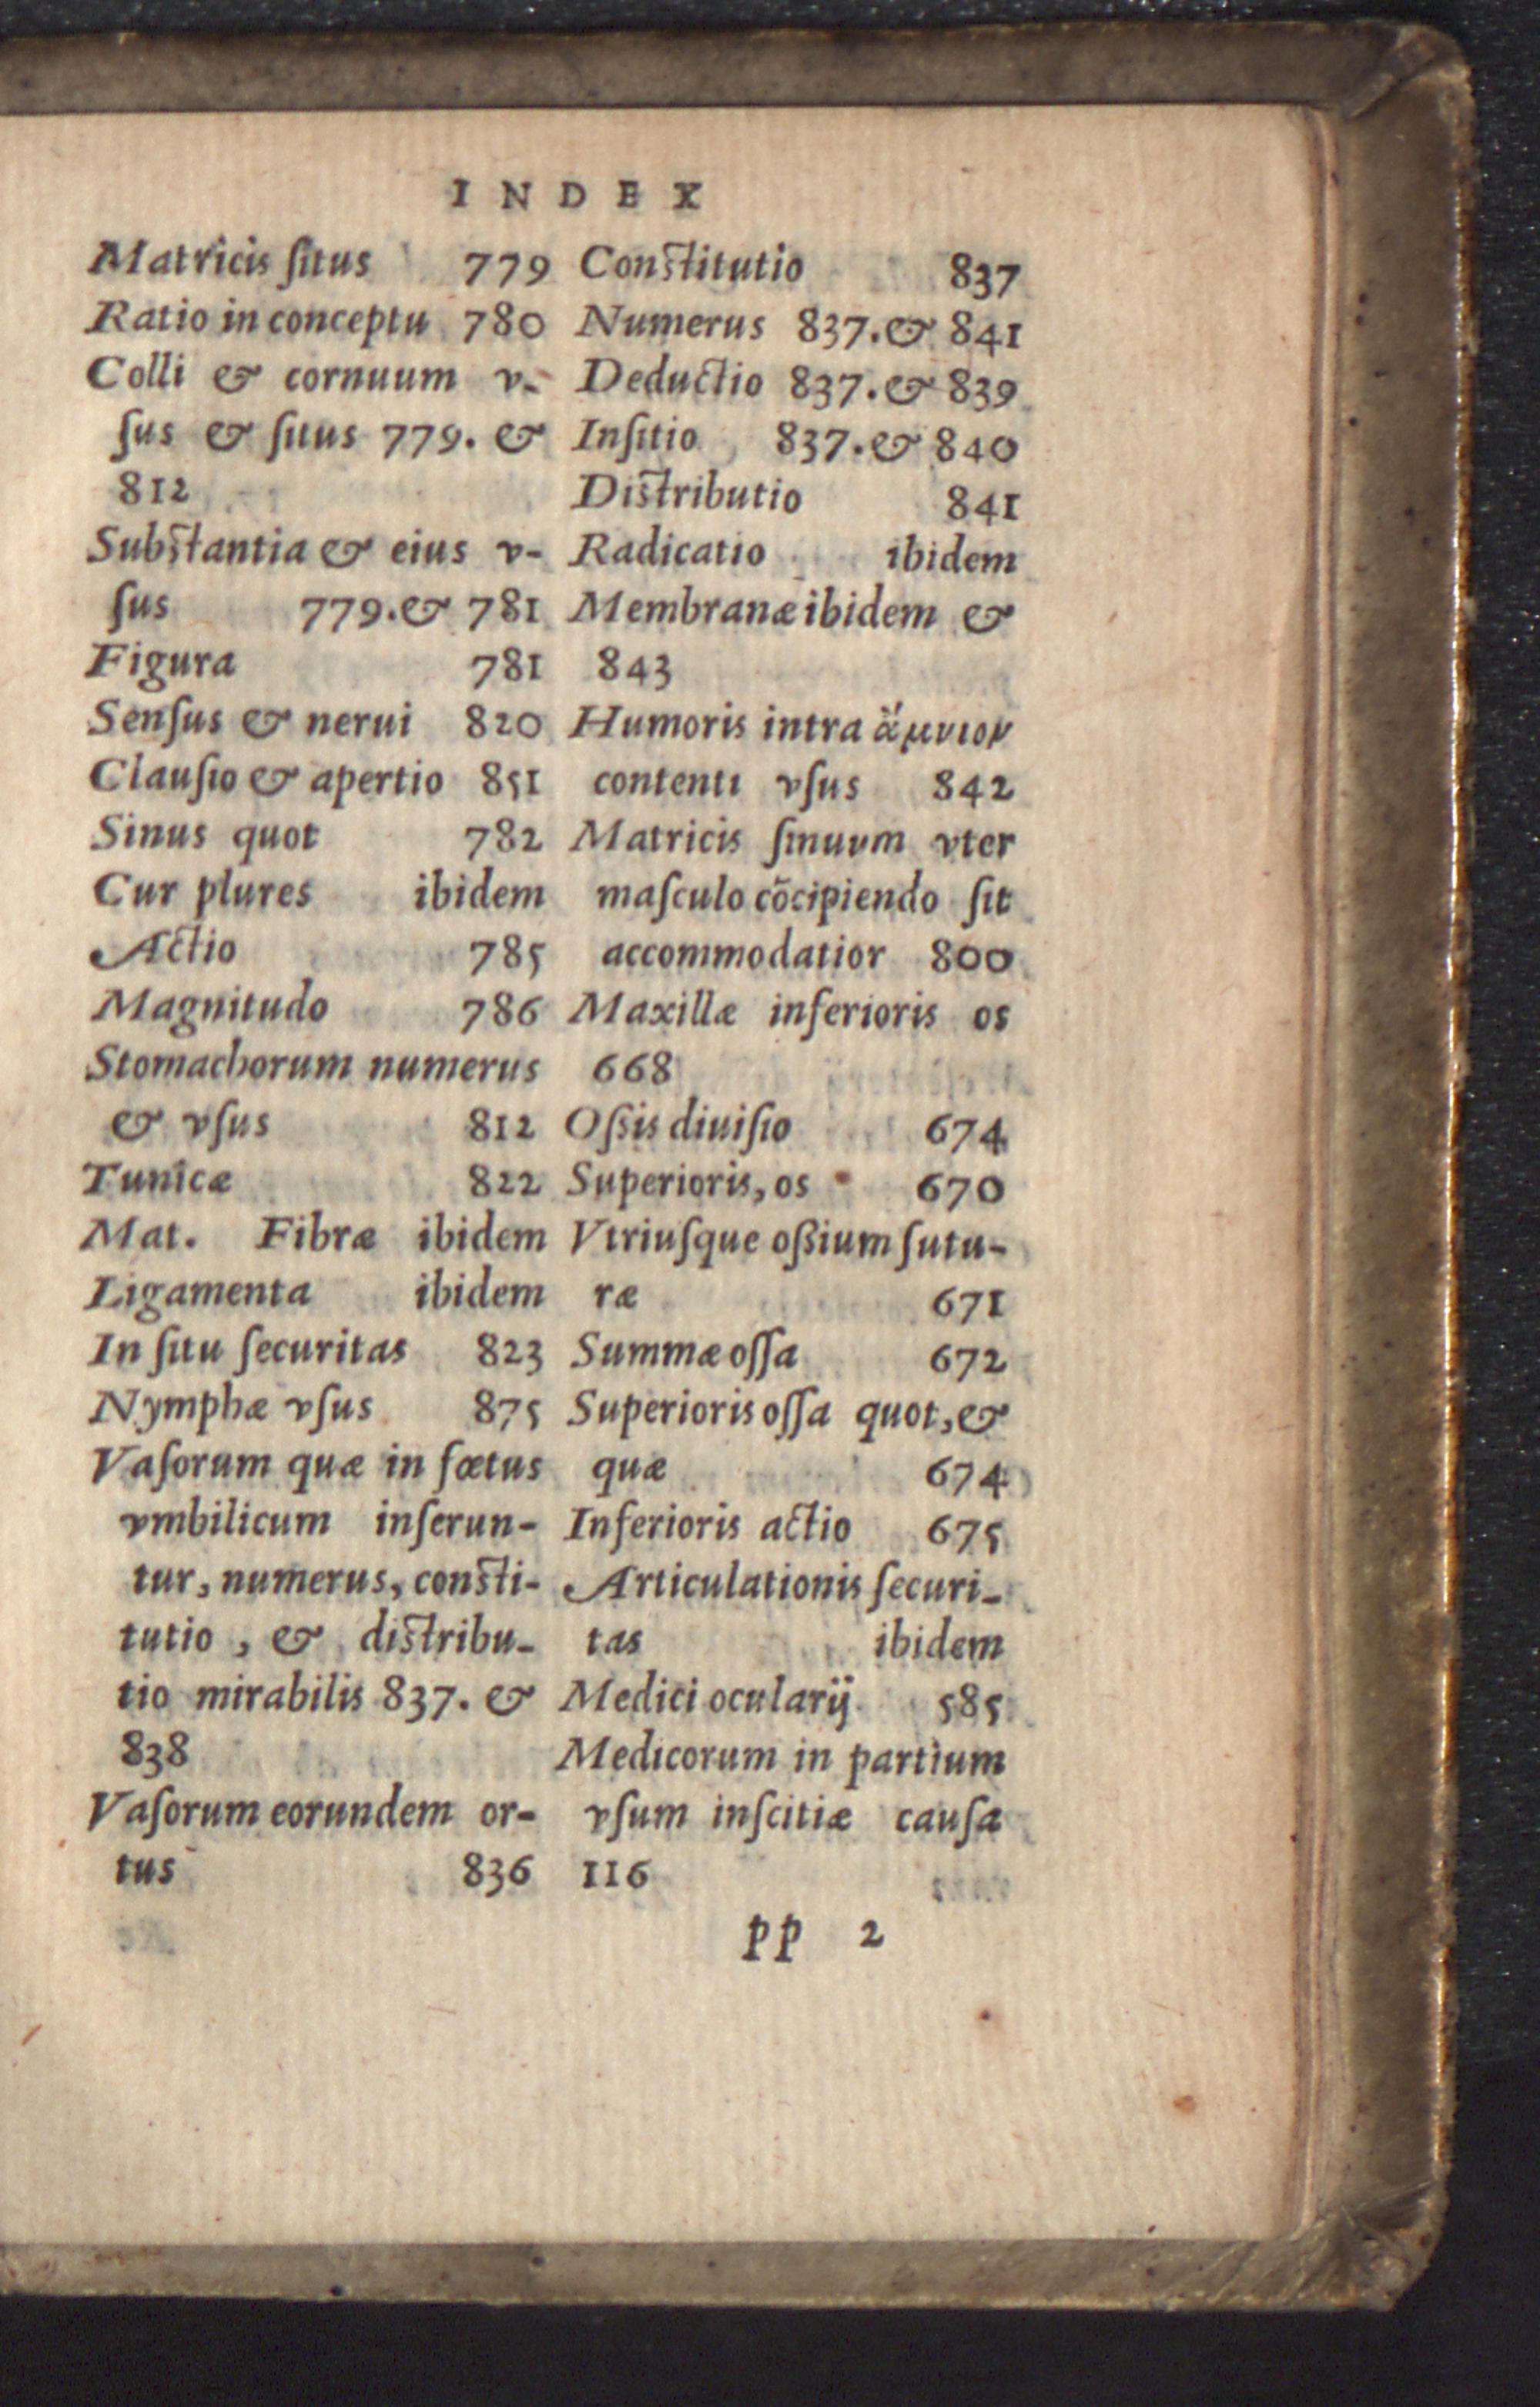 INDEX
Matricis ſitus 779
Ratio in conceptu 780
Colli & cornuum v-
ſus & ſitus 779. &
812
Subſtantia & eius v-
ſus 779. & 781
Figura 781
Senſus & nerui 820
Clauſio & apertio 851
Sinus quot 782
Cur plures ibidem
Actio 785
Magnitudo 786
Stomachorum numerus
& vſus 812
Tunicæ 822
Mat. Fibræ ibidem
Ligamenta ibidem
In ſitu ſecuritas 823
Nymphæ vſus 875
Vaſorum quæ in fœtus
vmbilicum inſerun-
tur, numerus, conſti-
tutio, & diſtribu-
tio mirabilis 837. &
838
Vaſorum eorundem or-
tus 836
Conſtitutio 837
Numerus 837. & 841
Deductio 837. & 839
Inſitio 837. & 840
Diſtributio 841
Radicatio ibidem
Membranæ ibidem &
843
Humoris intra ἄμνιον
contenti vſus 842
Matricis ſinuum vter
maſculo cōcipiendo ſit
accommodatior 800
Maxillæ inferioris os
668
Oſsis diuiſio 674
Superioris, os 670
Vtriuſque oſsium ſutu-
ræ 671
Summæ oſſa 672
Superioris oſſa quot, &
quæ 674
Inferioris actio 675
Articulationis ſecuri-
tas ibidem
Medici ocularij 585
Medicorum in partium
vſum inſcitiæ cauſa
116
pp 2